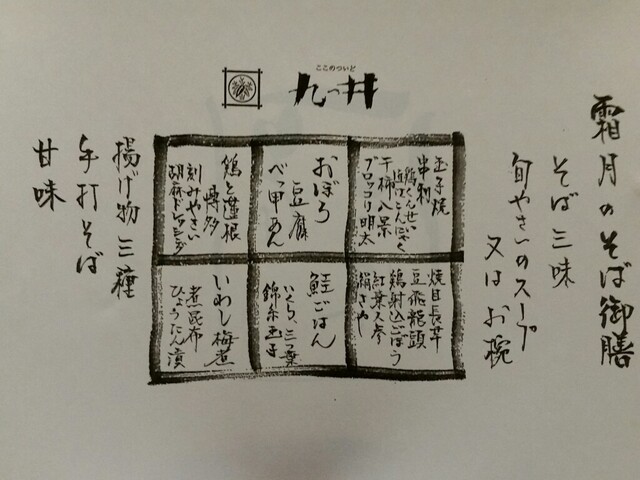 ここのついど
九つ井
霜月のそば御膳
そば三味
旬やさいのスープ
又はお椀
玉子焼
串刺
鶏くんせい
近江こんにゃく
干柿八景
ブロッコリ明太
おぼろ
豆腐
べっ甲あん
鶏と蓮根
博多
刻みやさい
胡麻ドレッシング
焼目長芋
豆飛龍頭
鶏射込ごぼう
紅葉人参
絹さや
鮭ごはん
いくら、三つ葉
錦糸玉子
いわし梅煮
煮昆布
ひょうたん漬
揚げ物三種
手打そば
甘味